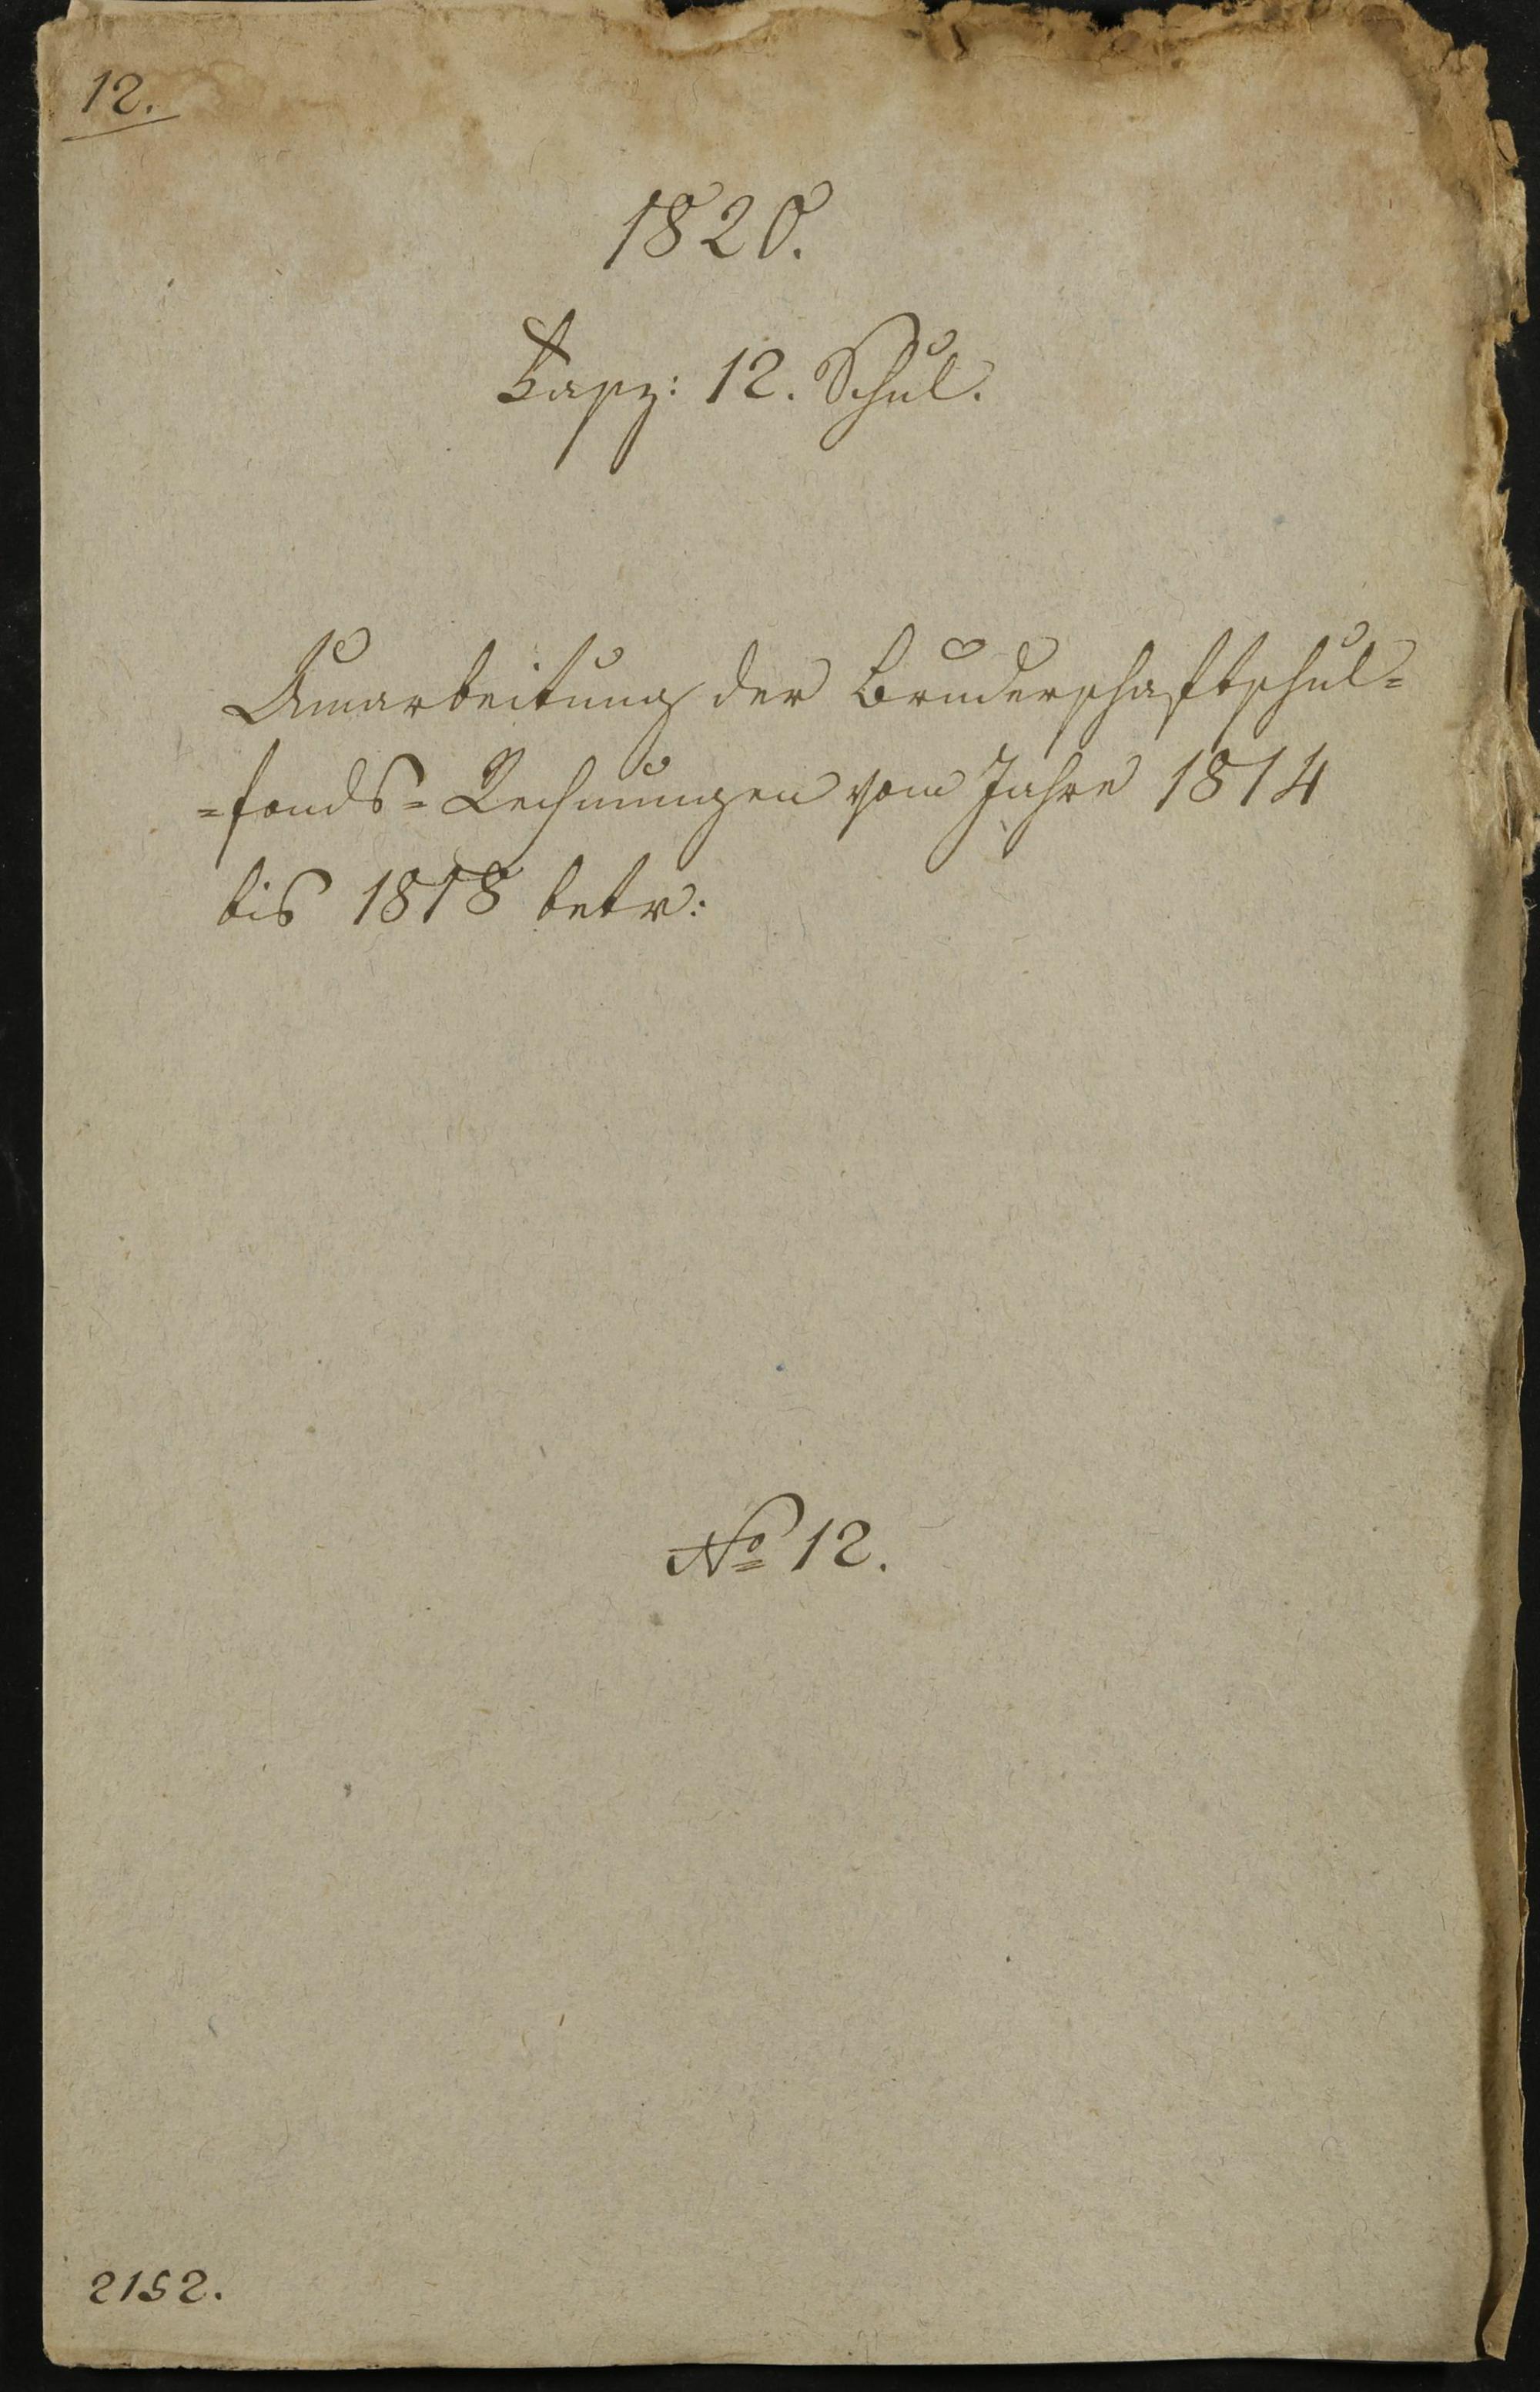 12.
1820.
Fasz: 12. Schul.
Umarbeitung der Bruderschaftschul=
=fonds= Rechnungen vom Jahre 1814
bis 1818 betr:
No 12.
2152.